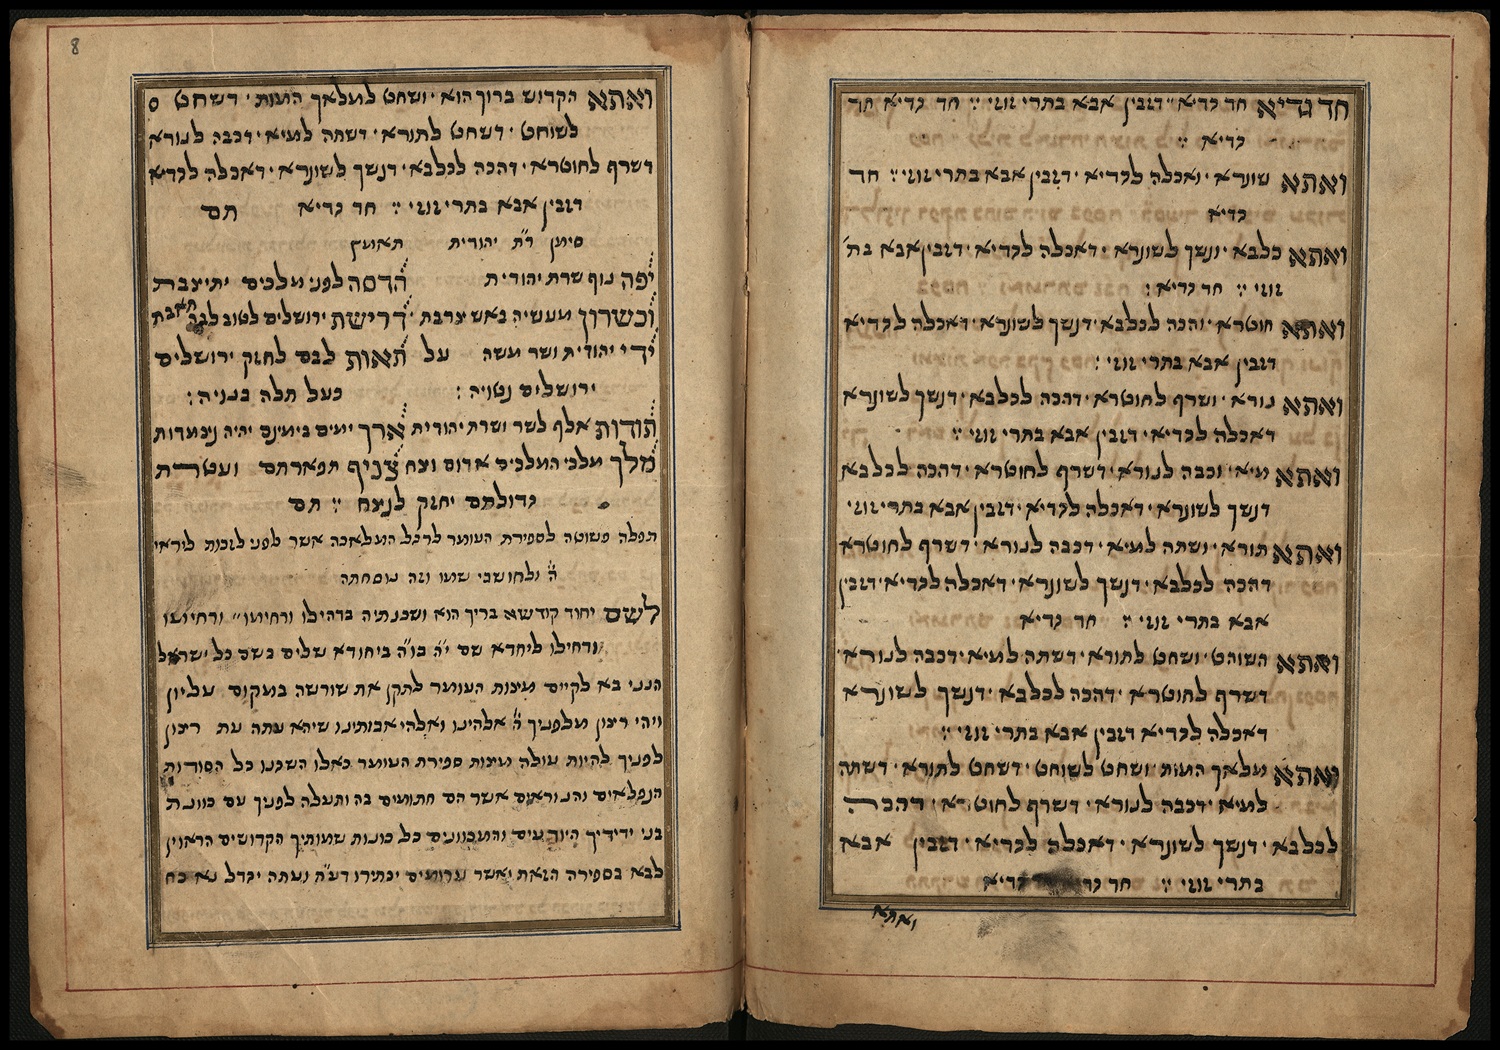 חד גדיא חד גדיא דזבין אבא בתרי זוזי : חד גדיא חד
גדיא :
ואתא שונרא ואכלה לגדיא דזבין אבא בתרי זוזי : חד
גדיא
ואתא כלבא ונשך לשונרא דאכלה לגדיא דזבין אבא בת'
זוזי : חד גדיא :
ואתא חוטרא והכה לכלבא דנשך לשונרא דאכלה לגדיא
דזבין אבא בתרי זוזי :
ואתא נורא ושרף לחוטרא דהכה לכלבא דנשך לשונרא
דאכלה לגדיא דזבין אבא בתרי זוזי :
ואתא מיא וכבה לנורא דשרף לחוטרא דהכה לכלבא
דנשך לשונרא דאכלה לגדיא דזבין אבא בתרי זוזי
ואתא תורא ושתה למיא דכבה לנורא דשרף לחוטרא
דהכה לכלבא דנשך לשונרא דאכלה לגדיא דזבין
אבא בתרי זוזי : חד גדיא
ואתא השוחט ושחט לתורא דשתה למיא דכבה לנורא
דשרף לחוטרא דהכה לכלבא דנשך לשונרא
דאכלה לגדיא דזבין אבא בתרי זוזי :
ואתא מלאך המות ושחט לשוחט דשחט לתורא דשתה
למיא דכבה לנורא דשרף לחוטרא דהכה
לכלבא דנשך לשונרא דאכלה לגדיא דזבין אבא
בתרי זוזי : חד גדיא
ואתא
8
ואתא הקדוש ברוך הוא ושחט למלאך המות דשחט
לשוחט דשחט לתורא דשתה למיא דכבה לנורא
דשרף לחוטרא דהכה לכלבא דנשך לשונרא דאכלה לגדיא
דזבין אבא בתרי זוזי : חד גדיא תם
סימן ר"ת יהודית תאומץ
יפה נוף שרת יהודית הדסה לפני מלכים יתיצבת
וכשרון מעשיה באש צרבת דרישת ירושלים לטוב
ידי יהודית ושר משה על תאות לבם לחזק ירושלים
ירושלים נטויה : כעל תלה בנויה :
תודות אלף לשר ושרת יהודית ארך ימים בימינם יהיה נצמדות
מלך מלכי המלכים אדום וצח צניף תפארתם ועטרת
גדולתם יחזק לנצח : תם
תפלה פשוטה לספירת העומר לרגל המלאכה אשר לפני לזכות ליראי
ה' ולחושבי שמו וזה נוסחתה
לשם יחוד קודשא בריך הוא ושכינתיה בדחילו ורחימו ורחימו
ודחילו ליחדא שם י"ה בו"ה ביחודא שלים בשם כל ישראל
הנני בא לקיים מצות העומר לתקן את שורשה במקום עליון
ויהי רצון מלפניך ה' אלהינו ואלהי אבותינו שיהא עתה עת רצון
לפניך להיות עולה מצות ספירת העומר כאלו השגנו כל הסודות
הנפלאים והנוראים אשר הם חתומים בה ותעלה לפניך עם כוונת
בני ידידיך היודעים והמכוונים כל כונות שמותיך הקדושים הראוין
לבא בספירה הזאת אשר יכתירו דע"ת ועתה יגדל נא כח